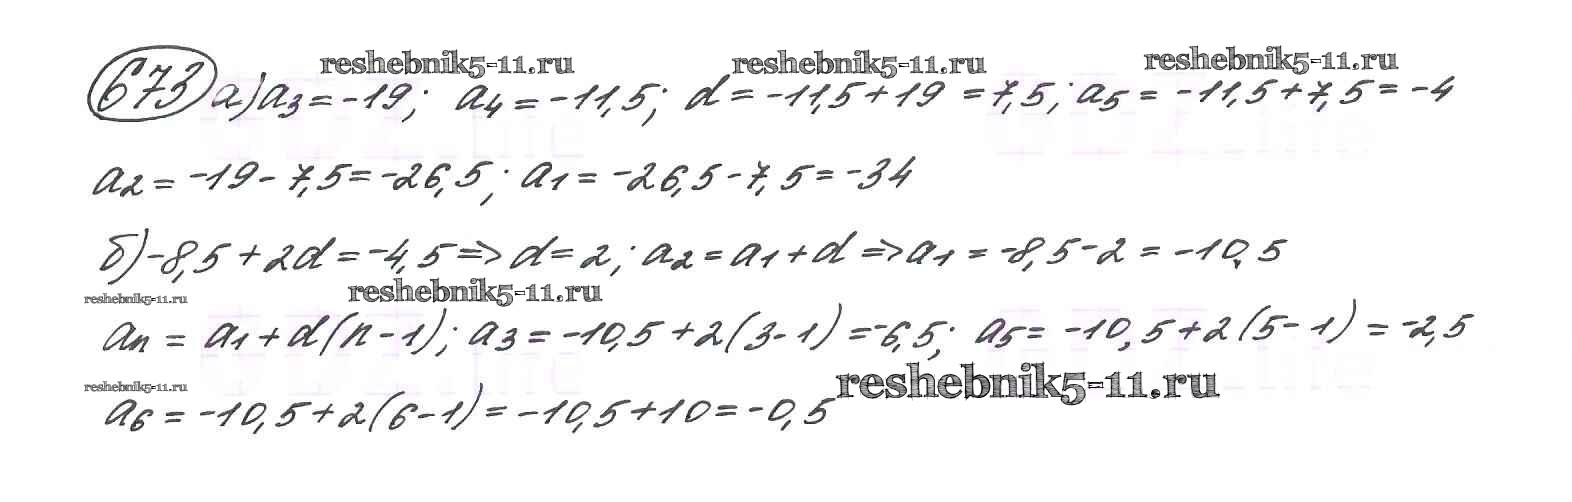 reshebnik5-11.ru reshebnik5-11.ru reshebnik5-11.ru
673 а) a3 = -19; a4 = -11,5; d = -11,5 + 19 = 7,5; a5 = -11,5 + 7,5 = -4
a2 = -19 - 7,5 = -26,5; a1 = -26,5 - 7,5 = -34
б) -8,5 + 2d = -4,5 => d = 2; a2 = a1 + d => a1 = -8,5 - 2 = -10,5
reshebnik5-11.ru reshebnik5-11.ru
an = a1 + d(n-1); a3 = -10,5 + 2(3-1) = -6,5; a5 = -10,5 + 2(5-1) = -2,5
reshebnik5-11.ru reshebnik5-11.ru
a6 = -10,5 + 2(6-1) = -10,5 + 10 = -0,5